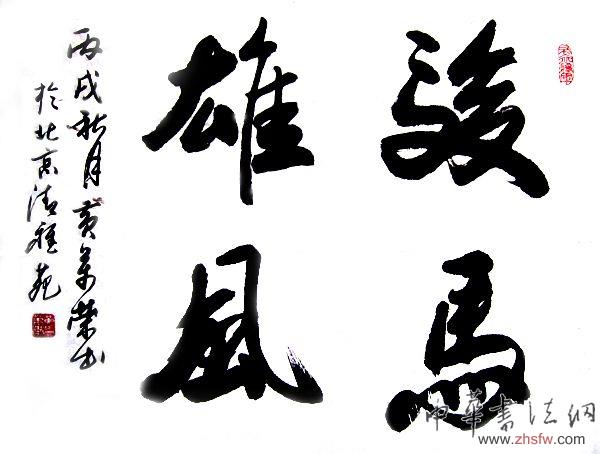 骏馬
雄風
丙戌秋月黄萬荣书
於北京清雅苑
中華書法網
www.zhsfw.com